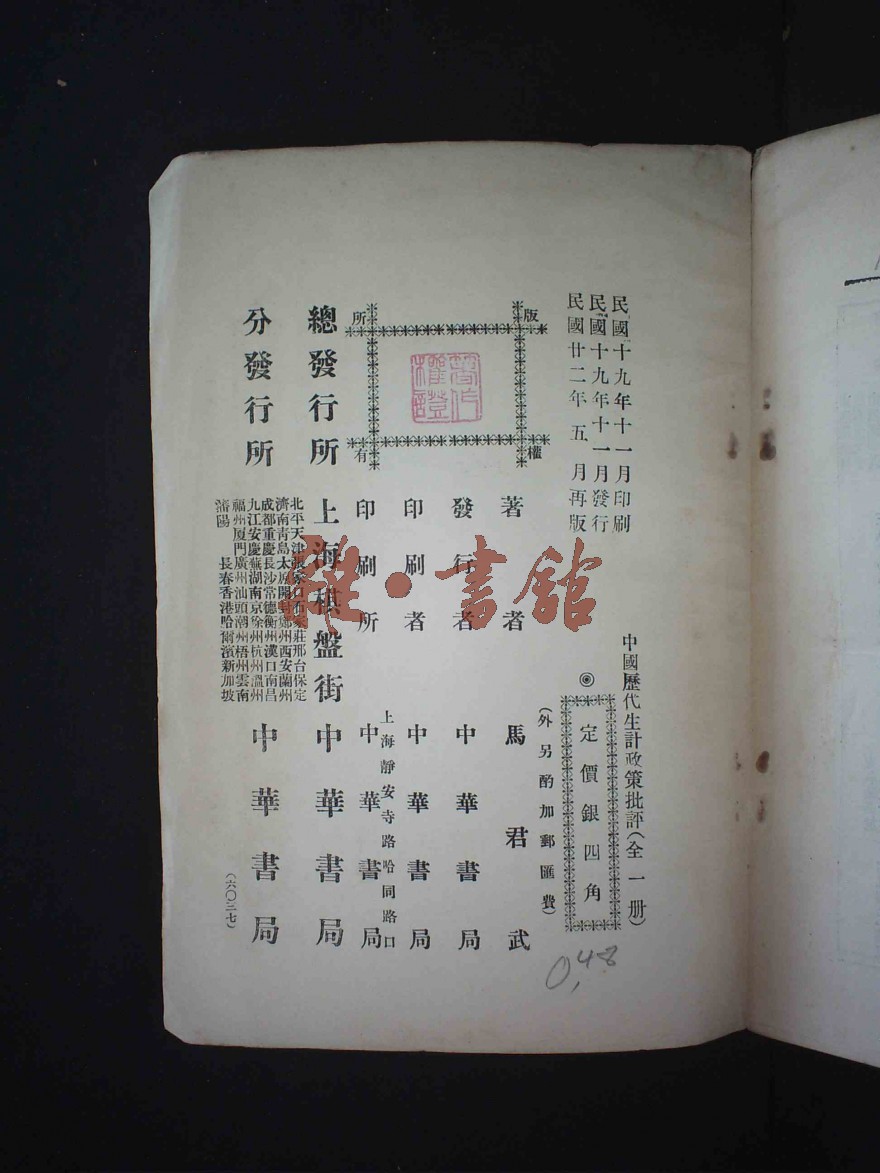 民國十九年十一月印刷
民國十九年十一月發行
民國廿二年五月再版
中國歷代生計政策批評(全一册)
◎定價銀四角
(外另酌加郵匯費)
版權所有
著作權證
著者 馬君武
發行者 中華書局
印刷者 中華書局
上海靜安寺路哈同路口
印刷所 中華書局
總發行所 上海棋盤街 中華書局
分發行所 中華書局
北平天津張家口石家莊邢台保定
濟南青島太原開封鄭州西安蘭州
成都重慶長沙常德衡州漢口南昌
九江安慶蕪湖南京徐州杭州溫州
福州厦門廣州汕頭潮州梧州雲南
瀋陽 長春香港哈爾濱新加坡
(六〇三七)
0.48
雅·書館